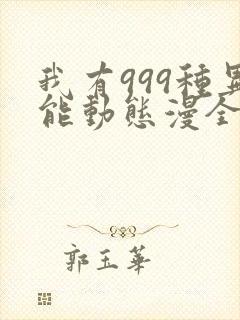 我有999種異
能動態漫全
郭玉華